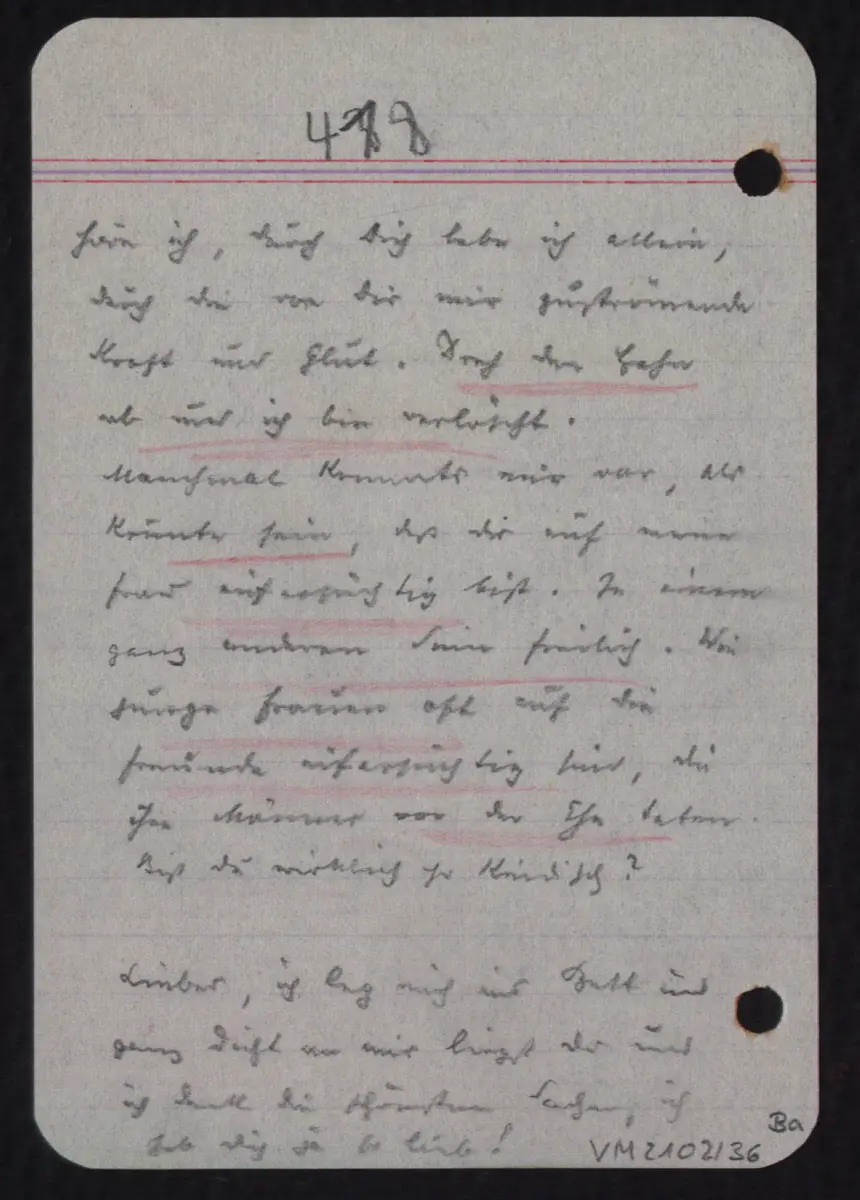 488
höre ich, durch Dich lebe ich allein,
durch die von Dir mir zuströmende
Kraft und Glut. Dreh den Hahn
ab und ich bin verlöscht.
Manchmal kommts mir vor, als
könnte sein, daß du auf meine
Frau eifersüchtig bist. In einem
ganz anderen Sinn freilich. Wie
junge Frauen oft auf die
Freunde eifersüchtig sind, die
ihre Männer vor der Ehe hatten.
Bist du wirklich so kindisch?
Lieber, ich leg mich ins Bett und
ganz dicht an mir liegst du und
ich denk die schönsten Sachen, ich
hab dich ja so lieb!
Ba
VM2102/36